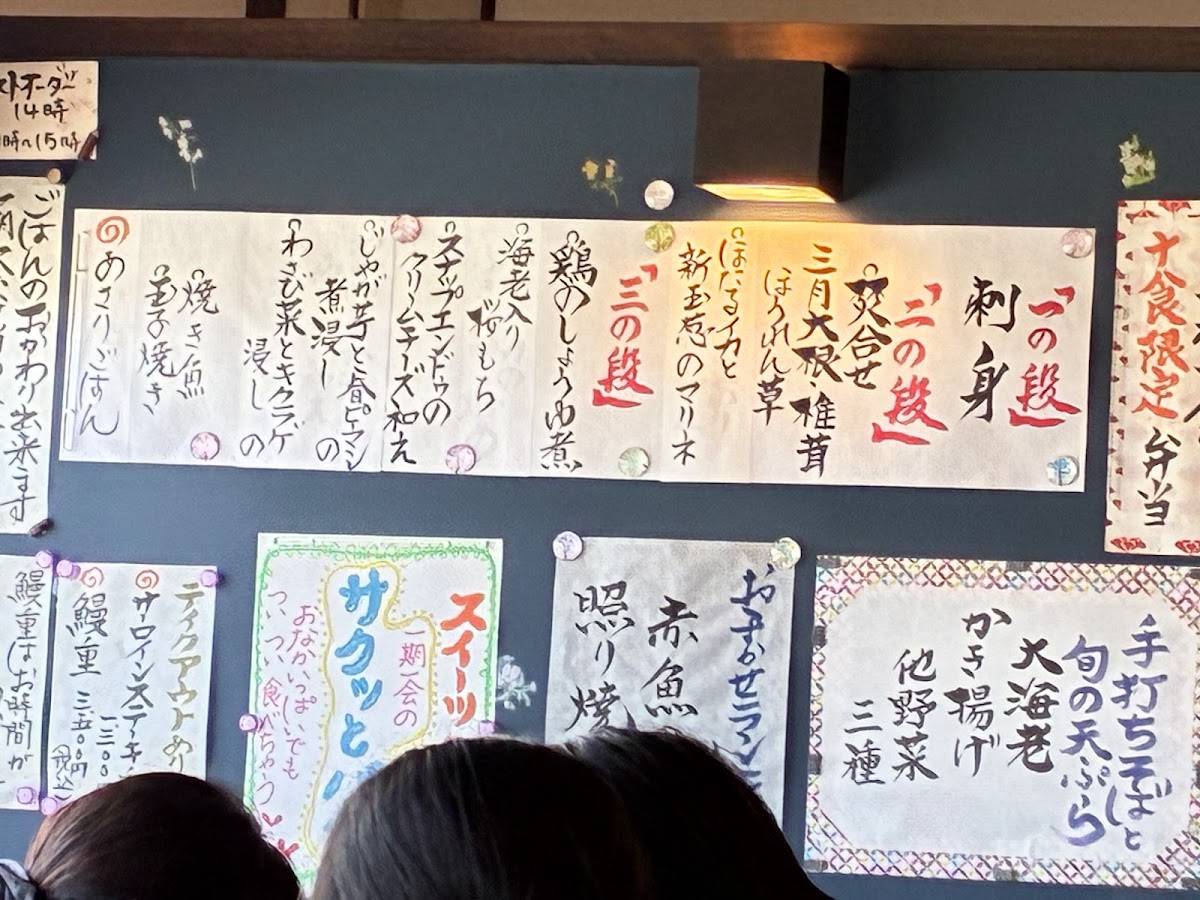 十食限定
弁当
「一の段」
刺身
「二の段」
炊合せ
三月大根・椎茸
ほうれん草
ほたるイカと
新玉葱のマリネ
「三の段」
鶏のしょうゆ煮
海老入り
桜もち
スナップエンドゥの
クリームチーズ和え
じゃが芋と
煮浸し の
わさび菜とキクラゲ
浸し の
焼き魚
玉子焼き
あさりごはん
ストオーダー
14時
時〜15時
ごはんのおかわり出来ます
手打ちそばと
旬の天ぷら
大海老
かき揚げ
他野菜
三種
おまかせランチ
赤魚
照り焼
スイーツ
一期一会の
サクッと
おなかいっぱいでも
つい、つい食べちゃう
テイクアウトあり
サーロインステーキ
鰻重 三,五〇〇円(税込)
鰻重はお時間が